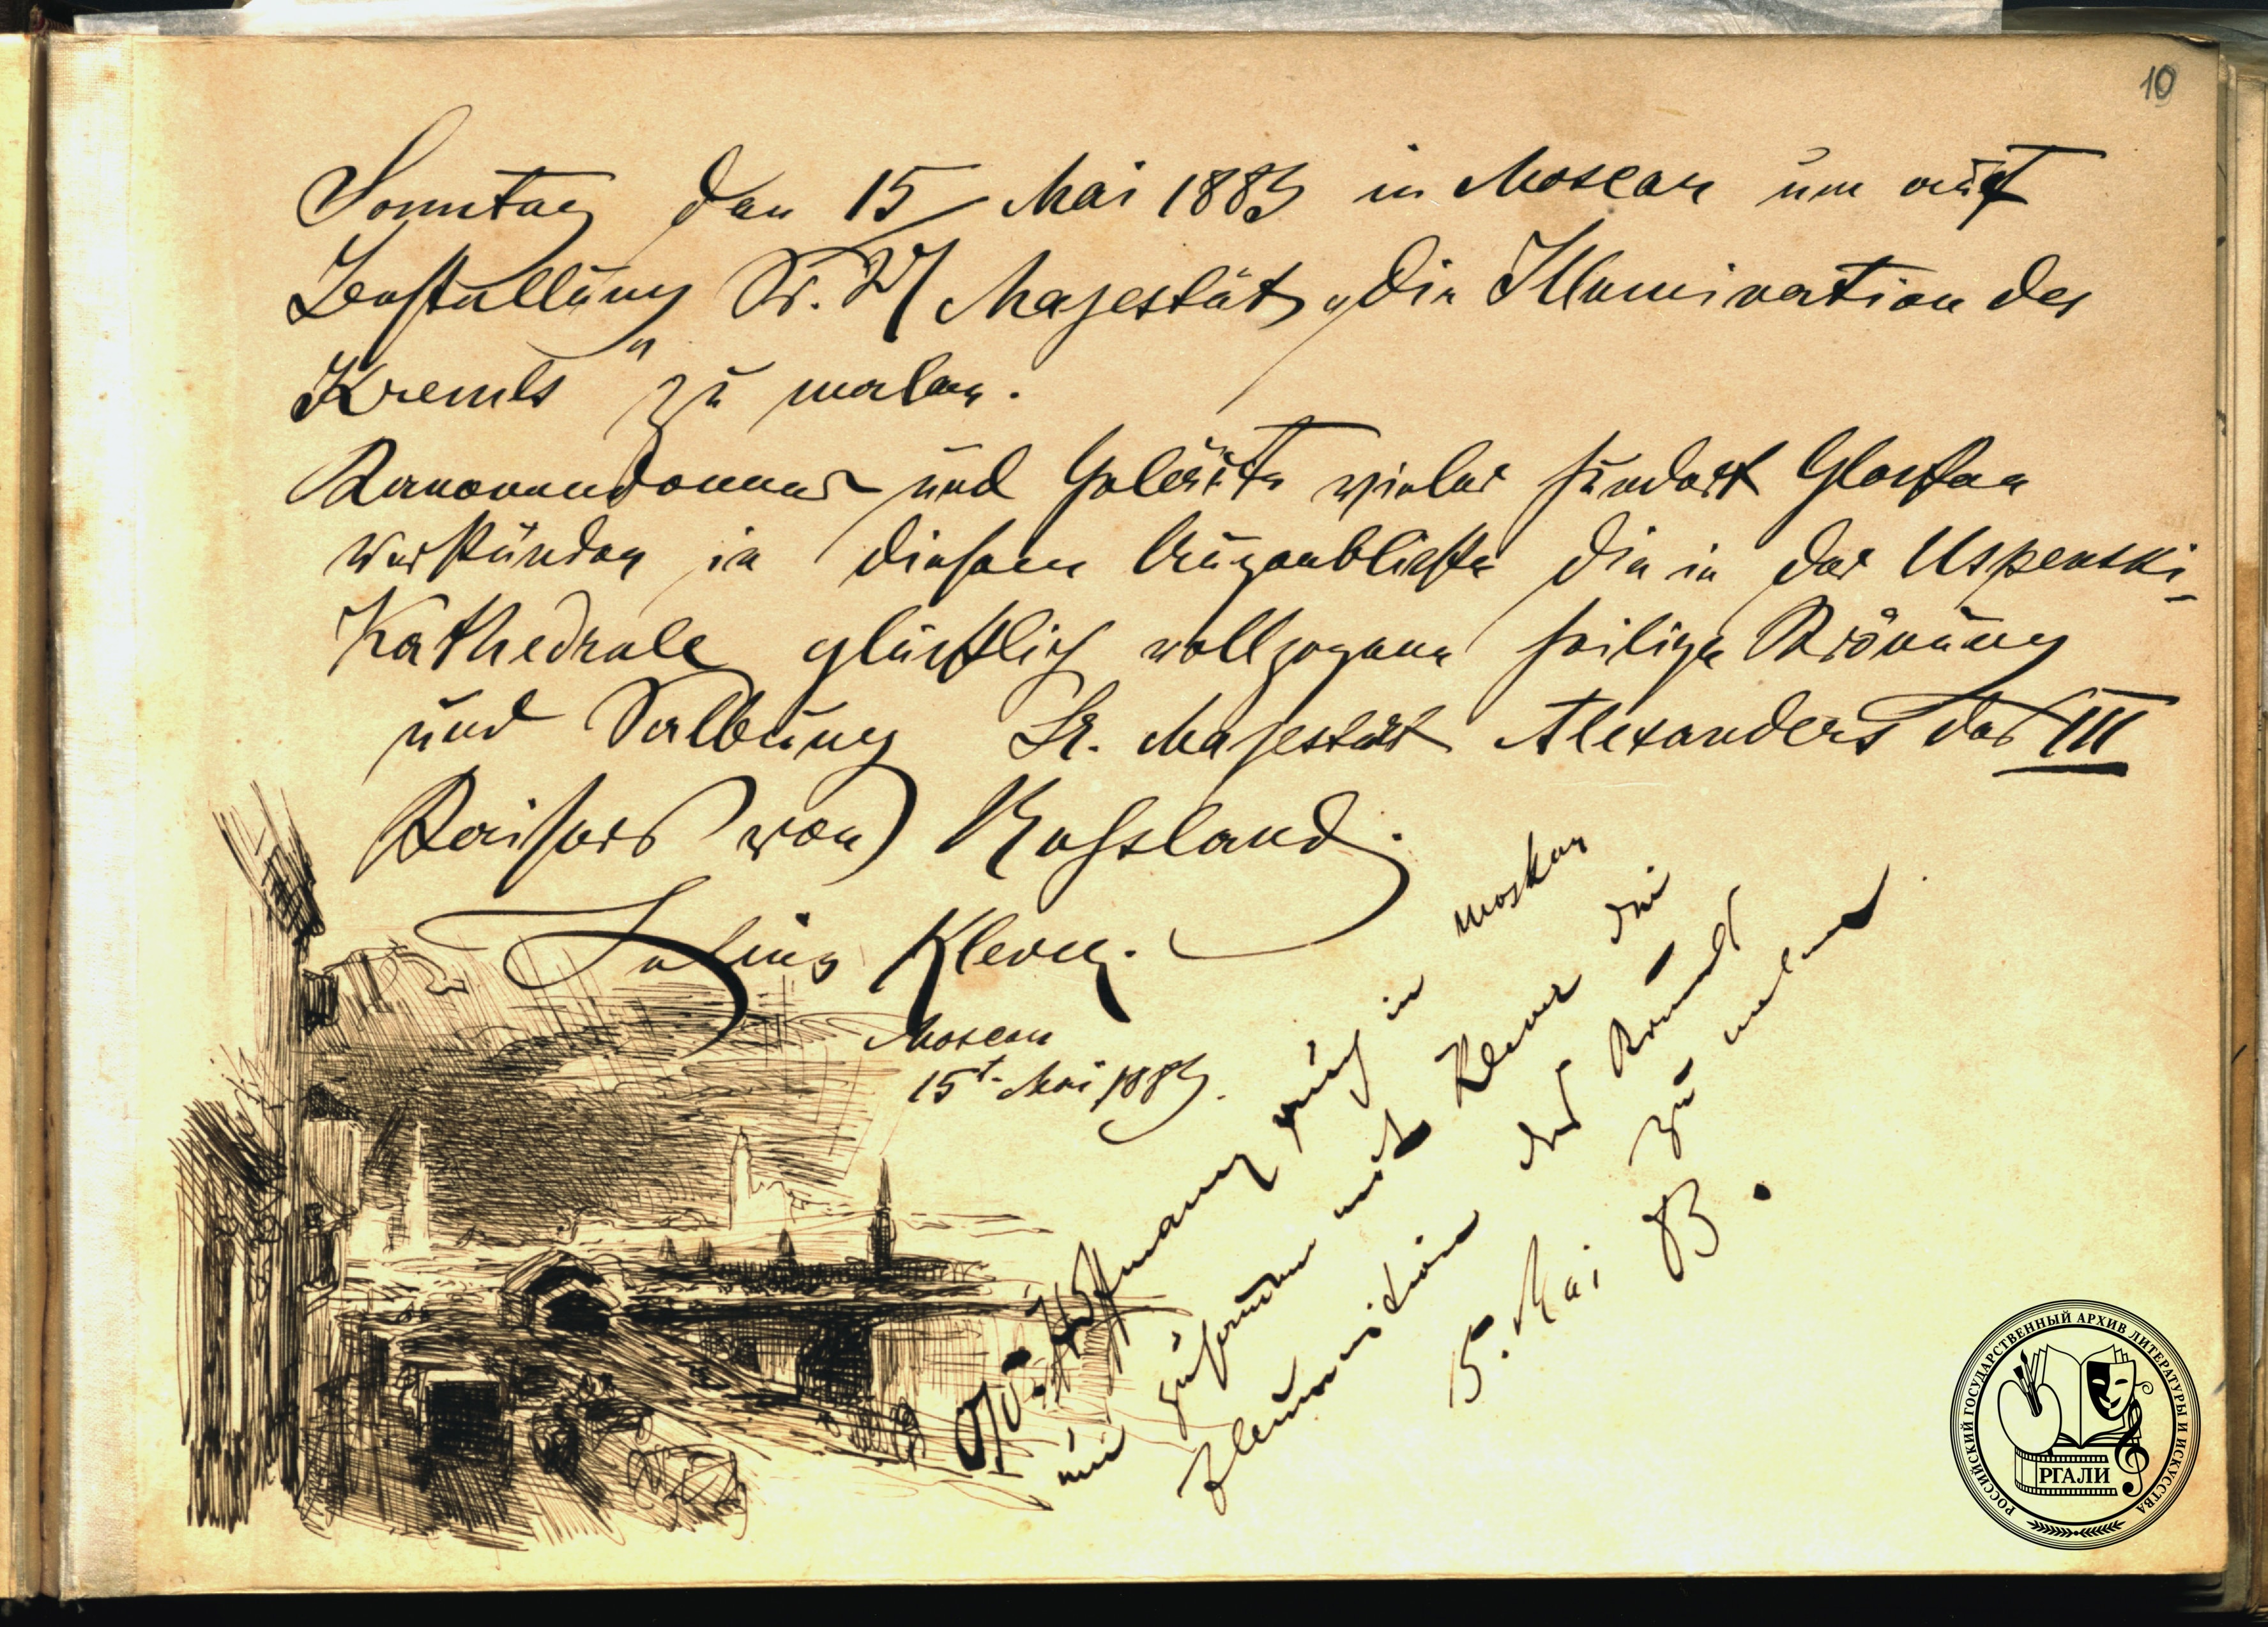 10
Sonntag den 15 Mai 1883 in Moscau um auf
Bestellung Sr. M Majestät „Die Illumination des
Kremls“ zu malen.
Kanonendonner und Geläute vieler hundert Glocken
verkünden in diesem Augenblicke die in der Uspenski-
Kathedrale glücklich vollzogene heilige Krönung
und Salbung Sr. Majestät Alexanders des III
Kaisers von Russland.
Julius Klever.
Moscau
15t. Mai 1883.
Hoffmann auch in Moskau
um zusammen mit Klever die
Illumination des Kremls
zu malen
15. Mai 83.
РОССИЙСКИЙ ГОСУДАРСТВЕННЫЙ АРХИВ ЛИТЕРАТУРЫ И ИСКУССТВА
РГАЛИ